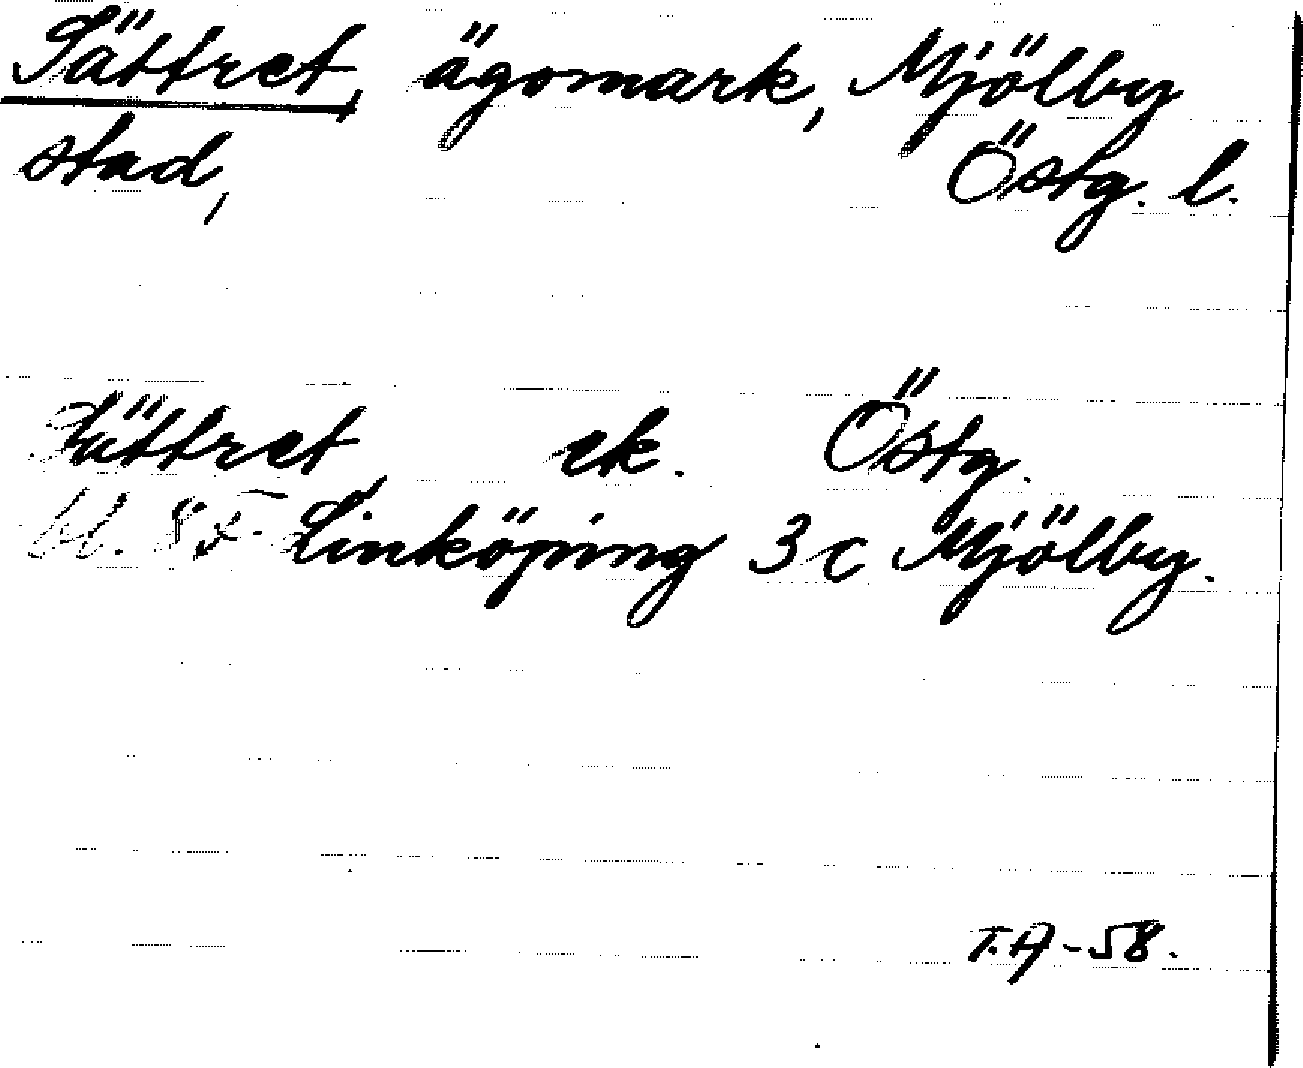 Sättret, ägomark, Mjölby
stad, Östg. l.
Sättret ek. Östg.
bl. 8F Linköping 3c Mjölby.
T.A-58.